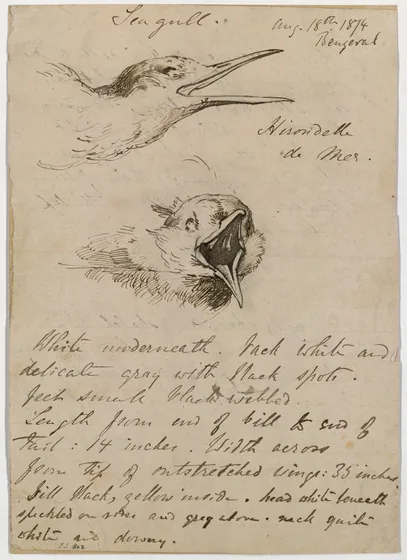 Sea gull.
Aug. 18th 1874
Benzeval
Hirondelle
de Mer.
White underneath. back white and
delicate gray with black spots.
feet small black webbed.
Length from end of bill to end of
tail: 14 inches. Width across
from tip of outstretched wings: 35 inches.
Bill black, yellow inside. head white beneath
speckled on sides and gray above. neck quite
white and downy.